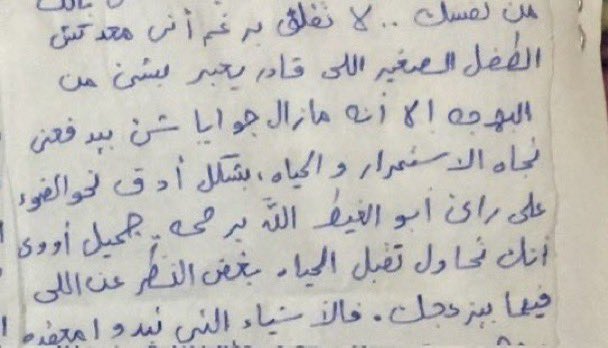 من نفسك .. لا تقلق برغم أنى معدتش
الطفل الصغير اللى قادر يعبر بشئ من
البهجه إلا أنه مازال جوايا شئ بيدفعنى
تجاه الاستمرار والحياه، بشكل أدق نحو الضوء
على رأى أبو الغيط الله يرحمه. جميل أووى
أنك تحاول تقبل الحياه بغض النظر عن اللى
فيها بيزعجك. فالأشياء التى تبدوا معقده